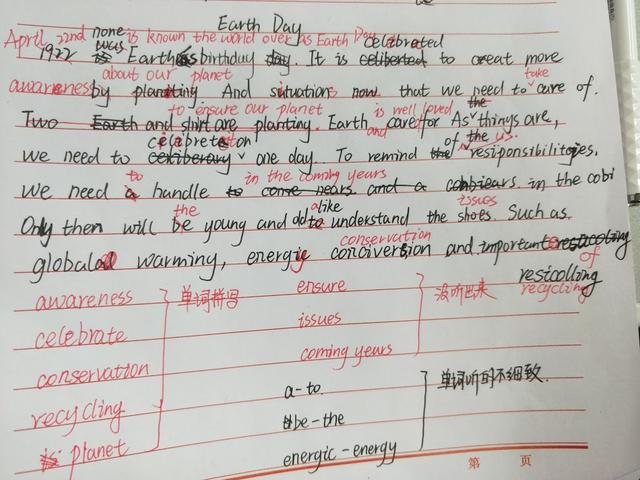 Earth Day
April 22nd none is known the world over as Earth Day celebrated
1922 is was Earth is birthday day. It is celiberted to creat more
about our planet take
awareness by planting And situations now. that we need to care of.
to ensure our planet is well loved the
Two Earth and shirt are planting. Earth and care for As things are,
celebrate on of the us.
we need to celiberary one day. To remind the resiponsibilities.
to in the coming years
we need a handle to come nears and a cobiears. in the cobi
the alike issues
Only then will be young and old to understand the shoes. Such as
conservation of
global warming, energic conciversion and important resicoling
resicolling
recycling
awareness
celebrate
conservation
recycling
planet
单词拼写
ensure
issues
coming years
没听出来
a-to.
be-the
energic-energy
单词听的不细致.
第 页